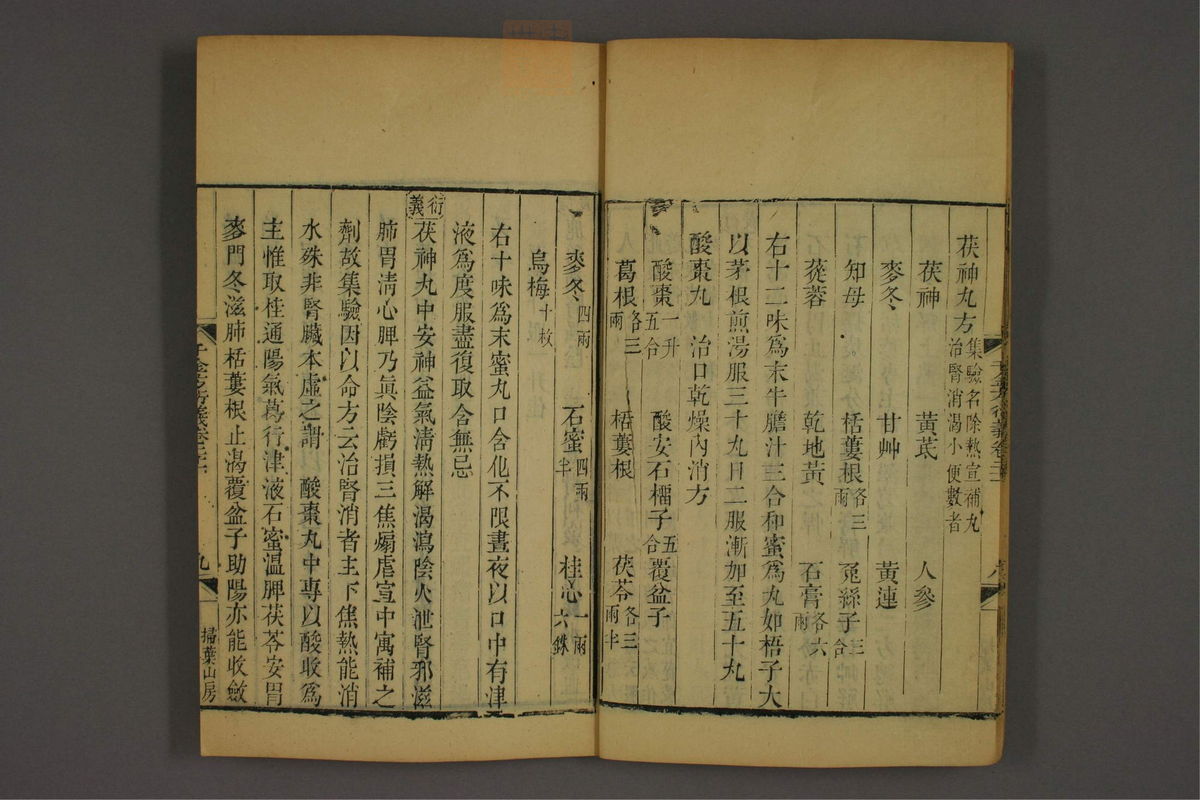 茯神丸方 集驗名除熱宣補丸 治腎消渴小便數者
茯神 黃芪 人參
麥冬 甘艸 黃連
知母 栝蔞根各三兩 菟絲子三合
蓯蓉 乾地黃 石膏各六兩
右十二味爲末牛膽汁三合和蜜爲丸如梧子大
以茅根煎湯服三十丸日二服漸加至五十丸
酸棗丸 治口乾燥內消方
酸棗一升五合 酸安石榴子五合 覆盆子
葛根各三兩 栝蔞根 茯苓各三兩半
麥冬四兩 石蜜四兩半 桂心一兩六銖
烏梅十枚
右十味爲末蜜丸口含化不限晝夜以口中有津
液爲度服盡復取含無忌
衍義 茯神丸中安神益氣清熱解渴瀉陰火泄腎邪滋
肺胃清心脾乃眞陰虧損三焦煽虐宣中寓補之
劑故集驗因以命方云治腎消者主下焦熱能消
水殊非腎臟本虛之謂 酸棗丸中專以酸收爲
主惟取桂通陽氣葛行津液石蜜溫脾茯苓安胃
麥門冬滋肺栝蔞根止渴覆盆子助陽亦能收斂
九
掃葉山房